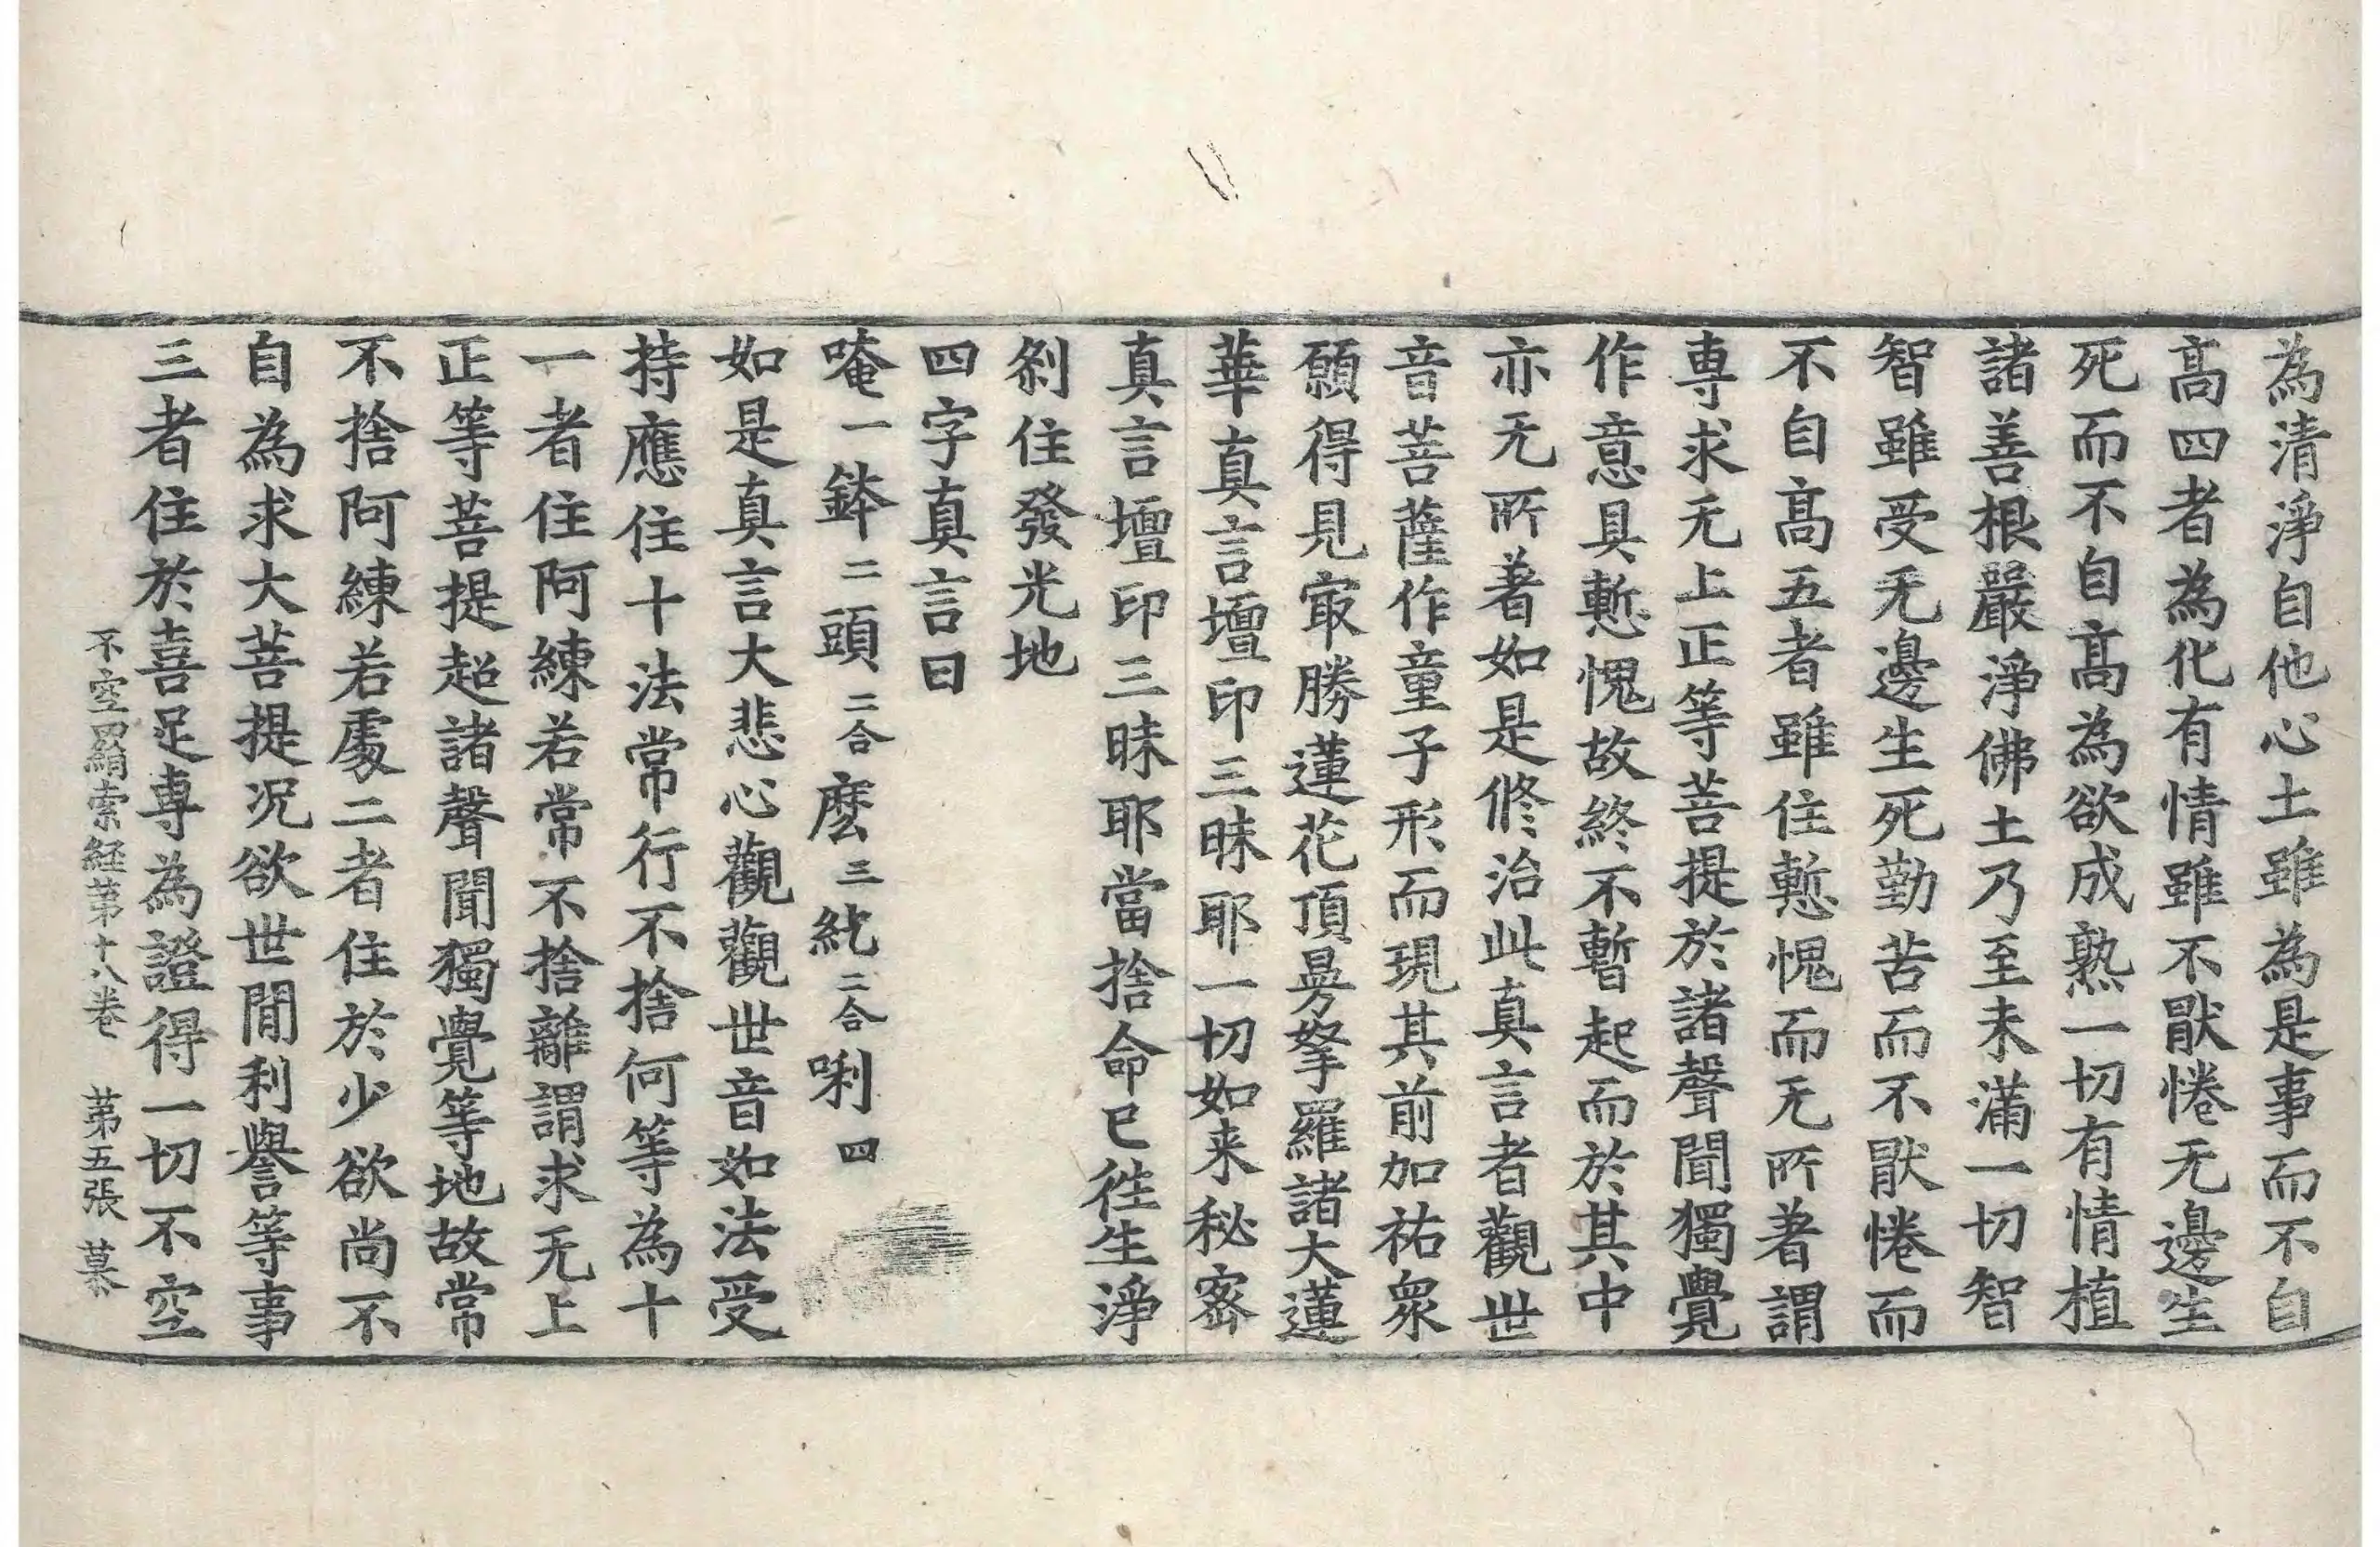 為清淨自他心土雖為是事而不自
髙四者為化有情雖不猒惓无邊生
死而不自髙為欲成熟一切有情植
諸善根嚴淨佛土乃至未滿一切智
智雖受无邊生死勤苦而不猒惓而
不自髙五者雖住慙愧而无所著謂
専求无上正等菩提於諸聲聞獨覺
作意具慙愧故終不暫起而於其中
亦无所著如是修治此真言者觀世
音菩薩作童子形而現其前加祐衆
願得見㝡勝蓮花頂曼拏羅諸大蓮
華真言壇印三昧耶一切如来秘密
真言壇印三昧耶當捨命已徃生淨
刹住發光地
四字真言曰
唵一鉢二頭二合麽三𤙖二合唎四
如是真言大悲心觀觀世音如法受
持應住十法常行不捨何等為十
一者住阿練若常不捨離謂求无上
正等菩提超諸聲聞獨覺等地故常
不捨阿練若處二者住於少欲尚不
自為求大菩提況欲世間利譽等事
三者住於喜足専為證得一切不空
不空羂索経第十八卷 第五張 慕